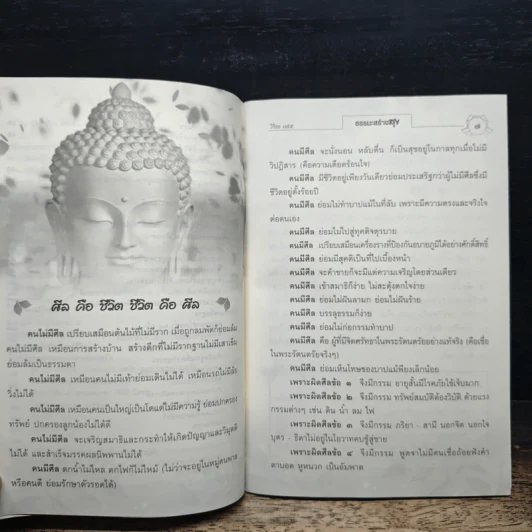 ศีล คือ ชีวิต ชีวิต คือ ศีล
คนไม่มีศีล เปรียบเสมือนต้นไม้ที่ไม่มีราก เมื่อถูกลมพัดก็ย่อมล้ม
คนไม่มีศีล เหมือนการสร้างบ้าน สร้างตึกที่ไม่มีรากฐานไม่มีเสาเข็ม
ย่อมล้มเป็นธรรมดา
คนไม่มีศีล เหมือนคนไม่มีเท้าย่อมเดินไม่ได้ เหมือนรถไม่มีล้อ
วิ่งไม่ได้
คนไม่มีศีล เหมือนคนเป็นใหญ่เป็นโตแต่ไม่มีความรู้ ย่อมปกครอง
ทรัพย์ ปกครองลูกน้องไม่ได้ดี
คนไม่มีศีล จะเจริญสมาธิและกระทำให้เกิดปัญญาและวิมุตติ
ไม่ได้ และสำเร็จมรรคผลนิพพานไม่ได้
คนมีศีล ตกน้ำไม่ไหล ตกไฟก็ไม่ไหม้ (ไม่ว่าจะอยู่ในหมู่คนพาล
หรือคนดี ย่อมรักษาตัวรอดได้)
ธรรมะสร้างสุข
๗
คนมีศีล จะนั่งนอน หลับตื่น ก็เป็นสุขอยู่ในกาลทุกเมื่อไม่มี
วิปฏิสาร (คือความเดือดร้อนใจ)
คนมีศีล มีชีวิตอยู่เพียงวันเดียวย่อมประเสริฐกว่าผู้ไม่มีศีลซึ่งมี
ชีวิตอยู่ตั้งร้อยปี
คนมีศีล ย่อมไม่ทำบาปแม้ในที่ลับ เพราะมีความตรงและจริงใจ
ต่อตนเอง
คนมีศีล ย่อมไม่ไปสู่ทุคติจตุรบาย
คนมีศีล เปรียบเสมือนเครื่องรางที่ป้องกันอบายภูมิได้อย่างศักดิ์สิทธิ์
คนมีศีล ย่อมมีสุคติเป็นที่ไปเบื้องหน้า
คนมีศีล จะค้าขายก็จะมีแต่ความเจริญโดยส่วนเดียว
คนมีศีล เข้าสมาธิก็ง่าย ไม่สะดุ้งตกใจง่าย
คนมีศีล ย่อมไม่ฝันลามก ย่อมไม่ฝันร้าย
คนมีศีล บรรลุธรรมก็ง่าย
คนมีศีล ย่อมไม่ก่อกรรมทำบาป
คนมีศีล คือ ผู้ที่มีจิตศรัทธาในพระรัตนตรัยอย่างแท้จริง (คือเชื่อ
ในพระรัตนตรัยจริงๆ)
คนมีศีล ย่อมเห็นโทษของบาปแม้เพียงเล็กน้อย
เพราะผิดศีลข้อ ๑ จึงมีกรรม อายุสั้นมีโรคภัยไข้เจ็บมาก
เพราะผิดศีลข้อ ๒ จึงมีกรรม ทรัพย์สมบัติต้องวิบัติ ด้วยแรง
กรรมต่างๆ เช่น ดิน น้ำ ลม ไฟ
เพราะผิดศีลข้อ ๓ จึงมีกรรม ภริยา - สามี นอกจิต นอกใจ
บุตร - ธิดาไม่อยู่ในโอวาทคบชู้สู่ชาย
เพราะผิดศีลข้อ ๔ จึงมีกรรม พูดจาไม่มีคนเชื่อถ้อยฟังคำ
ตาบอด หูหนวก เป็นอัมพาต